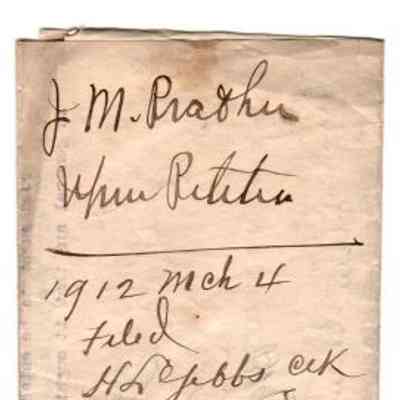 J M. Prather
Upon Petition
1912 Mch 4
Filed
H L Gibbs Clk